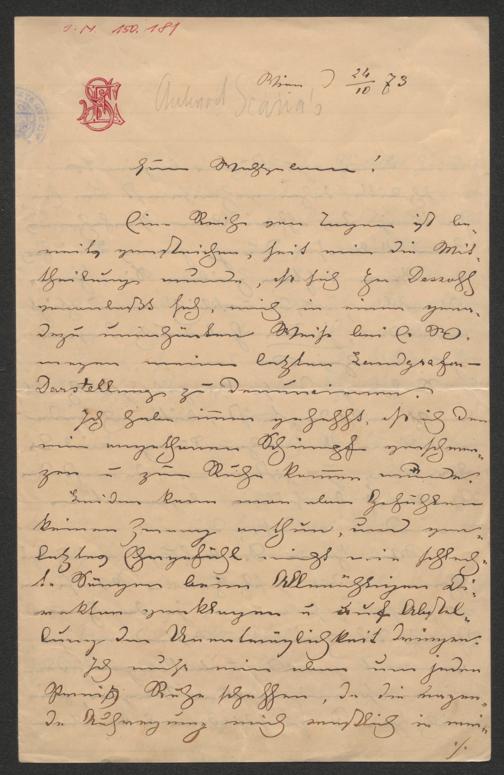 I. N. 150.189
Wien, 24/10 73
Euer Wohlgeboren!
Eine Reihe von Tagen ist be-
reits verstrichen, seit mir die Mit-
theilung wurde, daß sich Herr
veranlaßt sah, mich in einer gera-
dezu unerhörten Weise bei E. W.
wegen meiner letzten Landgrafen-
Darstellung zu denunciren.
Ich habe immer gehofft, daß ich den
mir angethanen Schimpf verschmer-
zen u zur Ruhe kommen würde.
Leider kann man aber Gefühlen
keinen Zwang anthun, und ver-
letztes Ehrgefühl nicht wie schlech-
te Sänger beim Allmächtigen Di-
rektor verklagen u auf Abstel-
lung der Unerträglichkeit dringen.
Ich muß mir aber um jeden
Preis Ruhe schaffen, da die
de Aufregung mich ernstlich in mei-
./.